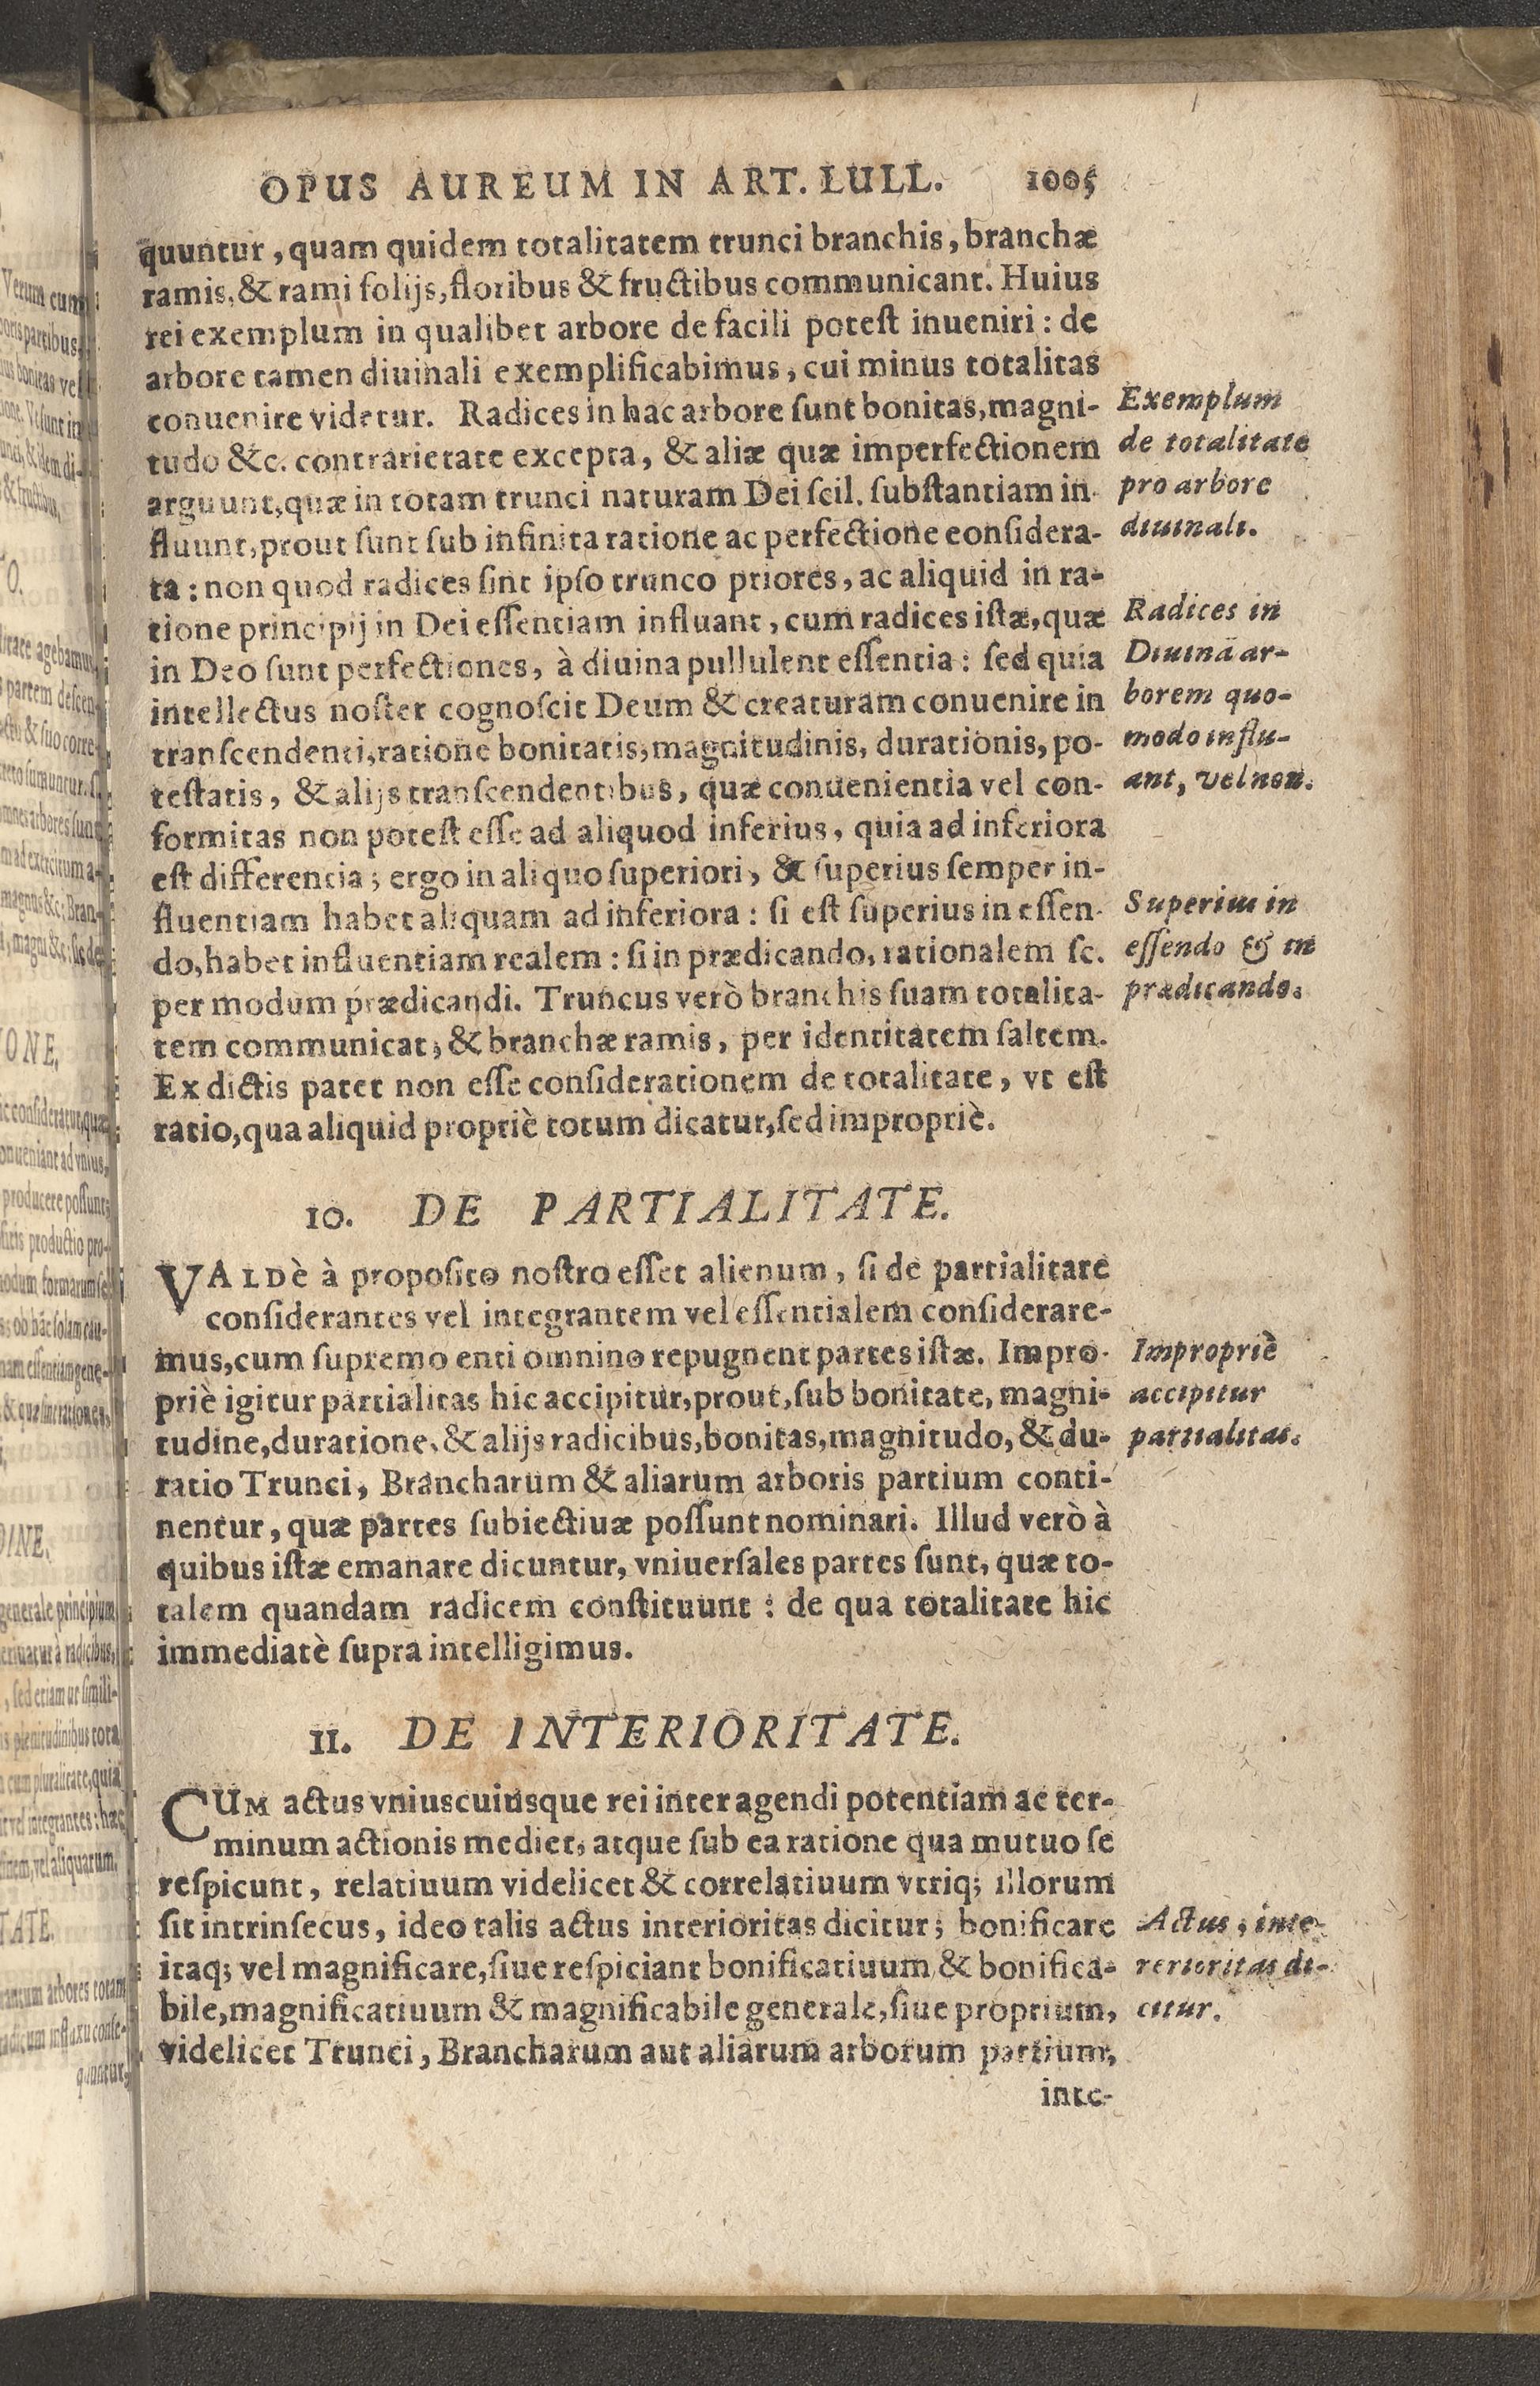 OPUS AUREUM IN ART. LULL. 1005
quuntur, quam quidem totalitatem trunci branchis, branchæ
ramis, & rami folijs, floribus & fructibus communicant. Huius
rei exemplum in qualibet arbore de facili potest inueniri: de
arbore tamen diuinali exemplificabimus, cui minus totalitas
conuenire videtur. Radices in hac arbore sunt bonitas, magni-
tudo &c. contrarietate excepta, & aliæ quæ imperfectionem
arguunt, quæ in totam trunci naturam Dei scil. substantiam in-
fluunt, prout sunt sub infinita ratione ac perfectione eonsidera-
ta: non quod radices sint ipso trunco priores, ac aliquid in ra-
tione principij in Dei essentiam influant, cum radices istæ, quæ
in Deo sunt perfectiones, à diuina pullulent essentia: sed quia
intellectus noster cognoscit Deum & creaturam conuenire in
transcendenti, ratione bonitatis, magnitudinis, durationis, po-
testatis, & alijs transcendentibus, quæ conuenientia vel con-
formitas non potest esse ad aliquod inferius, quia ad inferiora
est differentia; ergo in aliquo superiori, & superius semper in-
fluentiam habet aliquam ad inferiora: si est superius in essen-
do, habet influentiam realem: si in prædicando, rationalem sc.
per modum prædicandi. Truncus verò branchis suam totalita-
tem communicat, & branchæ ramis, per identitatem saltem.
Ex dictis patet non esse considerationem de totalitate, vt est
ratio, qua aliquid propriè totum dicatur, sed impropriè.
Exemplum
de totalitate
pro arbore
diuinali.
Radices in
Diuinã ar-
borem quo-
modo influ-
ant, vel non.
Superius in
essendo & in
prædicando.
10. DE PARTIALITATE.
VALDè à proposito nostro esset alienum, si de partialitate
considerantes vel integrantem vel essentialem considerare-
mus, cum supremo enti omnino repugnent partes istæ. Impro-
priè igitur partialitas hic accipitur, prout, sub bonitate, magni-
tudine, duratione, & alijs radicibus, bonitas, magnitudo, & du-
ratio Trunci, Brancharum & aliarum arboris partium conti-
nentur, quæ partes subiectiuæ possunt nominari. Illud verò à
quibus istæ emanare dicuntur, vniuersales partes sunt, quæ to-
talem quandam radicem constituunt: de qua totalitate hic
immediatè supra intelligimus.
Impropriè
accipitur
partialitas.
11. DE INTERIORITATE.
CUM actus vniuscuiusque rei inter agendi potentiam ac ter-
minum actionis mediet, atque sub ea ratione qua mutuo se
respicunt, relatiuum videlicet & correlatiuum vtriq; illorum
sit intrinsecus, ideo talis actus interioritas dicitur; bonificare
itaq; vel magnificare, siue respiciant bonificatiuum & bonifica-
bile, magnificatiuum & magnificabile generale, siue proprium,
videlicet Trunci, Brancharum aut aliarum arborum partium,
inte-
Actus, inte-
rerioritas di-
citur.